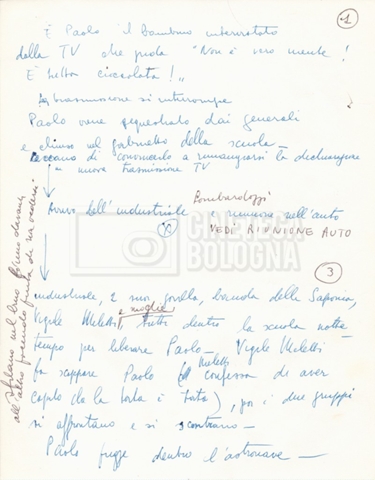 1
È Paolo il bambino intervistato
della TV che grida "Non è vero niente!
È tutta cioccolata!"
La trasmissione si interrompe
Paolo viene sequestrato dai generali
e chiuso nel gabinetto della scuola -
cercano di convincerlo a rimangiarsi la dichiarazione
in nuova trasmissione TV
Arrivo dell'industriale
Bombardozzi
riunione nell'auto
VEDI RIUNIONE AUTO
CINETECA
BOLOGNA
3
industriale, 2 suoi gorilla, banda della Saponia,
Vigile Meletti, e moglie tutti dentro la scuola notte
tempo per liberare Paolo - Vigile Meletti
fa scappare Paolo (Meletti confessa di aver
capito che la torta è torta), poi i due gruppi
si affrontano e si scontrano -
Paolo fugge dentro l'astronave -
sfilano nel buio uno davanti
all'altro facendo finta di non vedersi